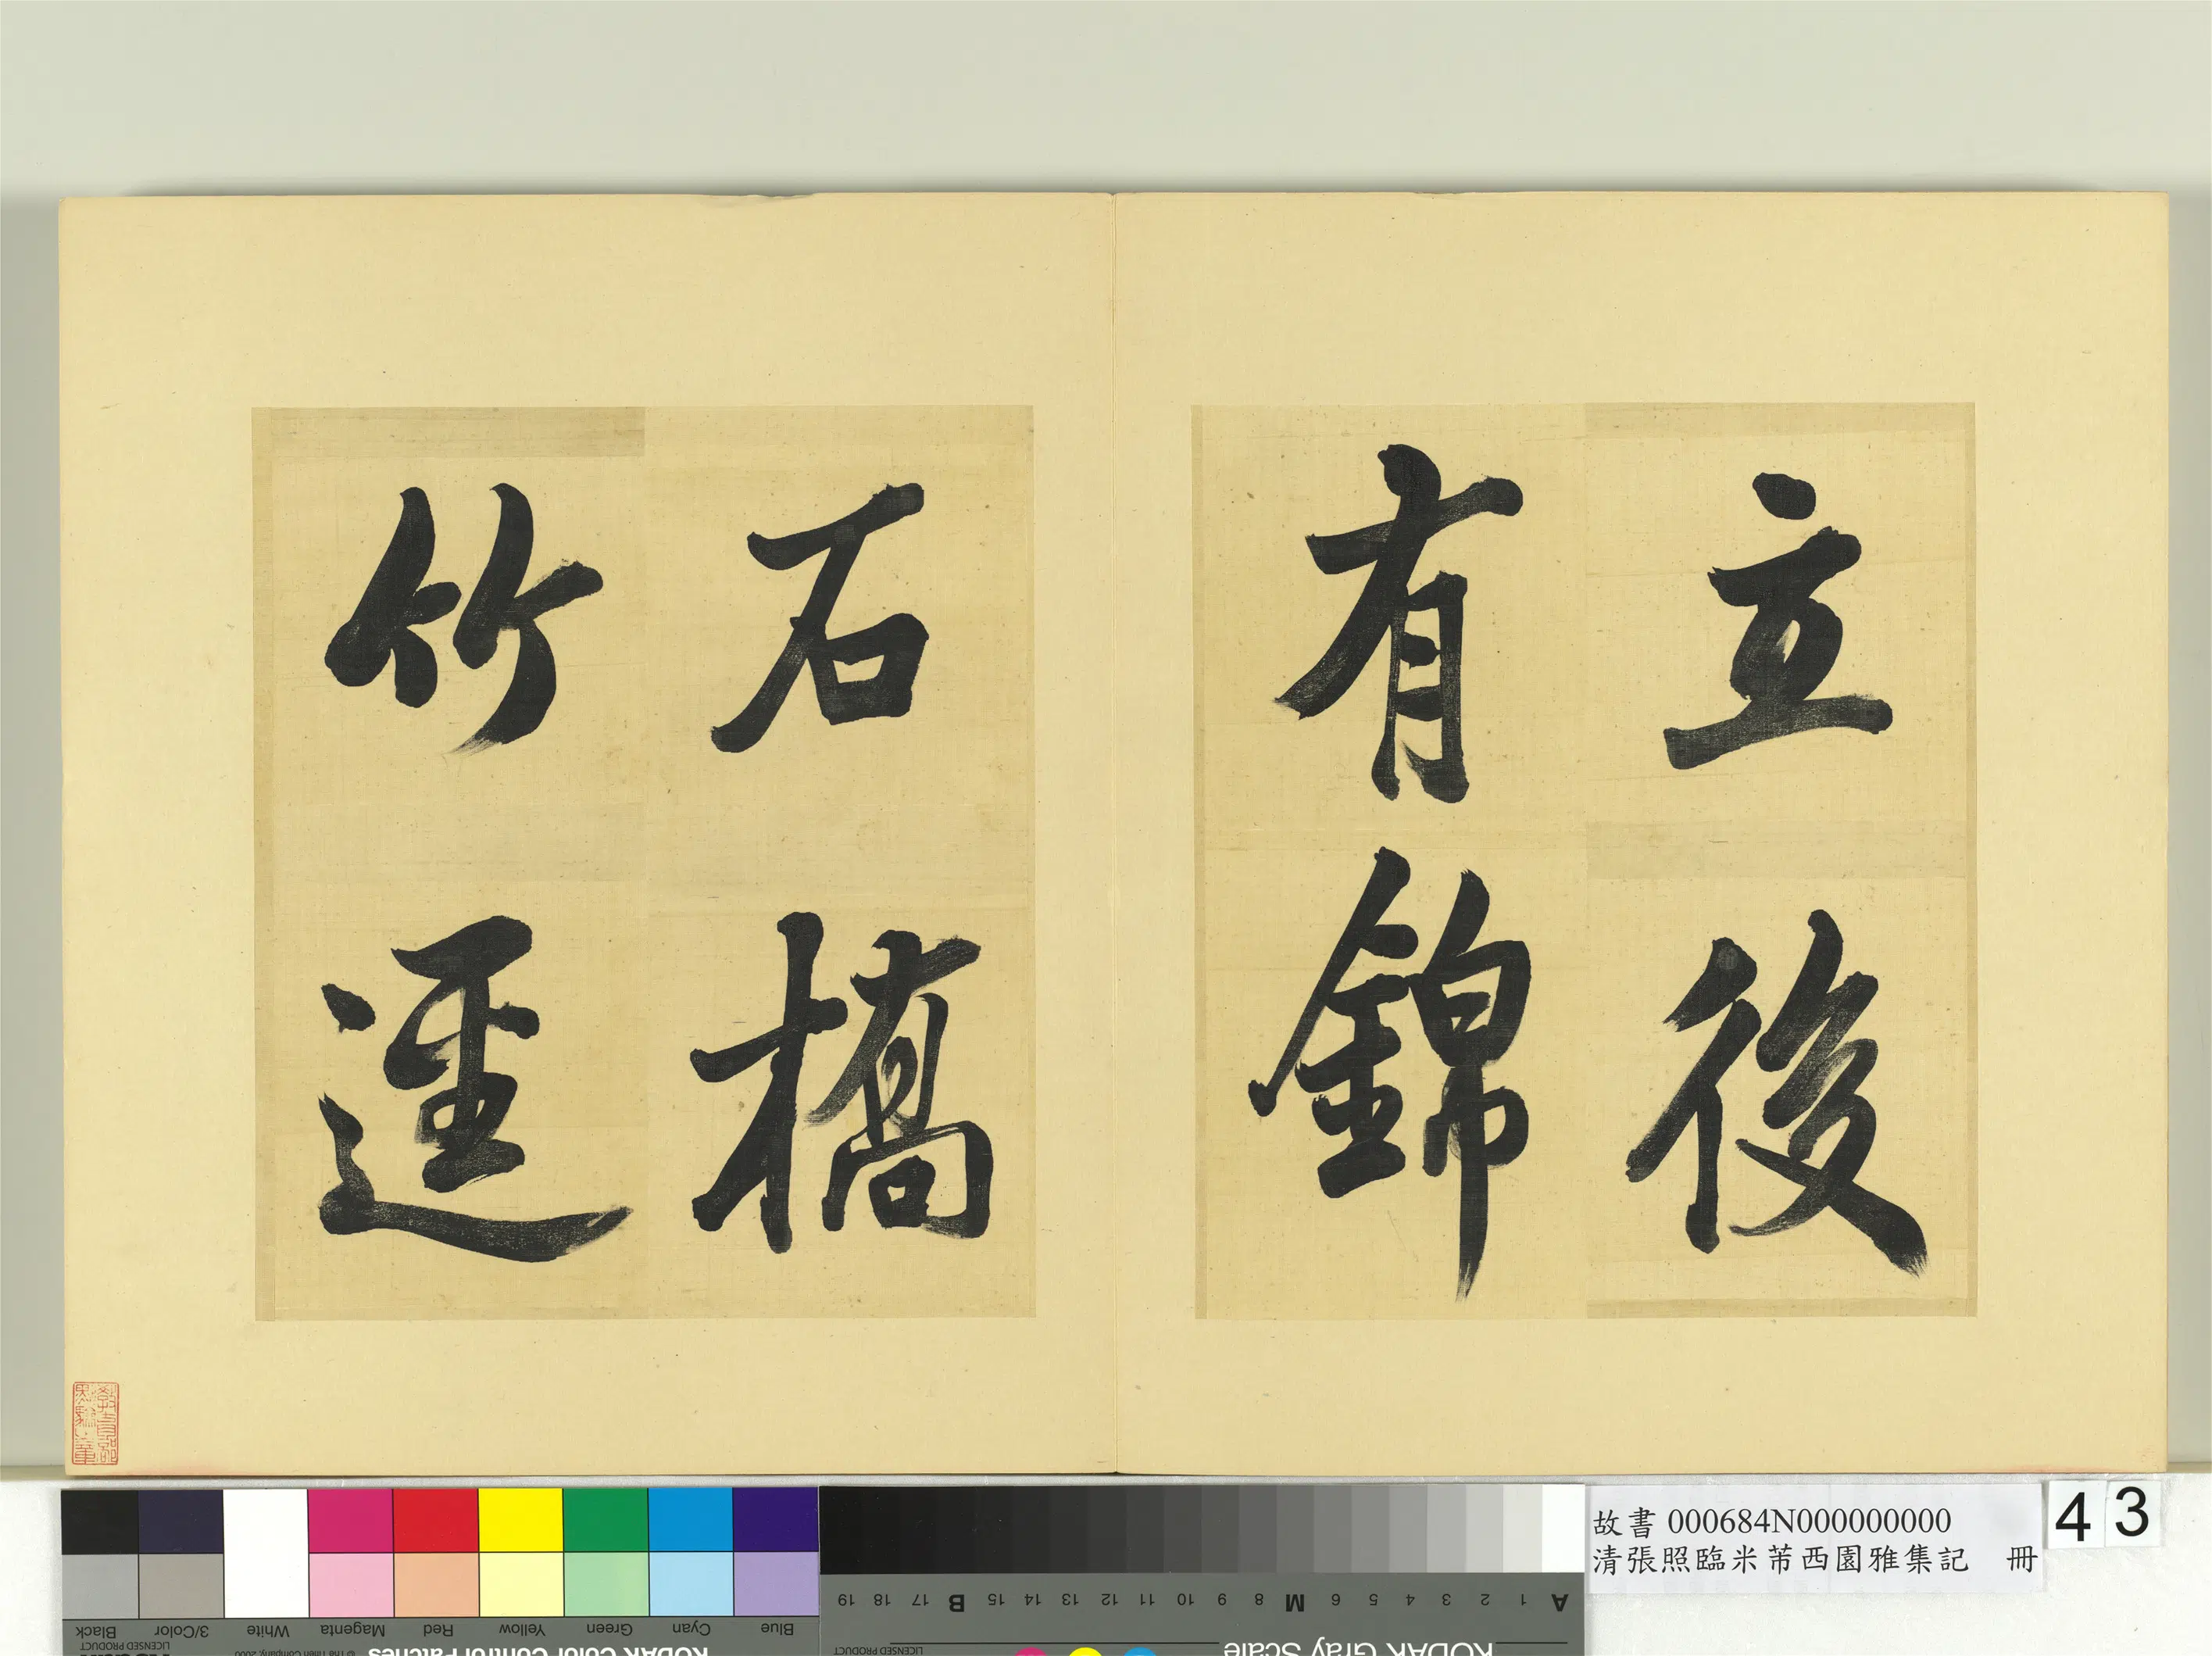 立後
有錦
石橋
竹逕
教育部
點驗之章
故書 000684N000000000
清張照臨米芾西園雅集記 冊
43
Black
3/Color
White
Magenta
Red
Yellow
Green
Cyan
Blue
LICENSED PRODUCT
© The Tiffen Company, 2000
KODAK Color Control Patches
A 1 2 3 4 5 6 M 8 9 10 11 12 13 14 15 B 17 18 19
KODAK Gray Scale
LICENSED PRODUCT